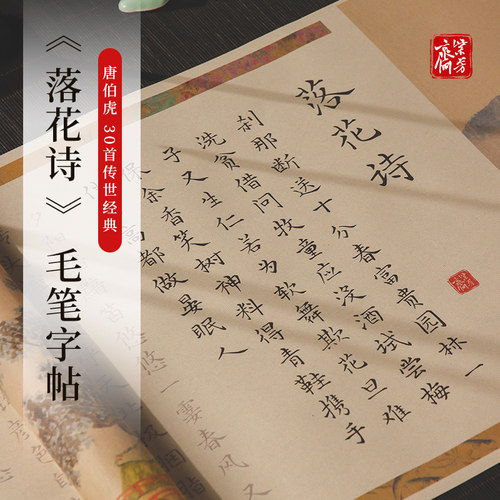 《落花诗》毛笔字帖
唐伯虎 30首传世经典
落花诗
刹那断送十分春富贵园林一
洗贫借问牧童应没酒试尝梅
子又生仁若为软舞欺花旦难
保余香笑树神料得青鞋携手
高都做晏眠人
悠悠一霎春风又